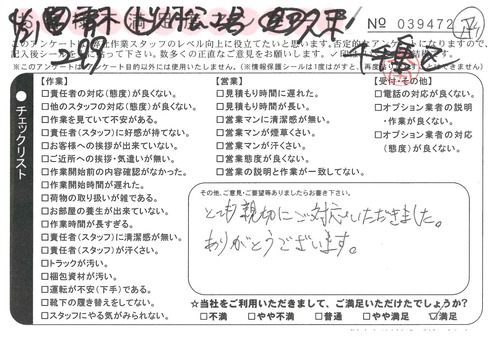 No 039472
このアンケートは弊社作業スタッフのレベル向上に役立てたいと思います。否定的なアンケートになりますので、
記入後シールを貼って下さい。数多くの正直なご意見をお願いします。
(※このアンケートは本アンケート目的以外には使用いたしません。)(※情報保護シールは1度はがすと、再度
チェックリスト
【作業】
□責任者の対応(態度)が良くない。
□他のスタッフの対応(態度)が良くない。
□作業を見ていて不安がある。
□責任者(スタッフ)に好感が持てない。
□お客様への挨拶が出来ていない。
□ご近所への挨拶・気遣いが無い。
□作業開始前の内容確認がなかった。
□作業開始時間が遅れた。
□荷物の取り扱いが雑である。
□お部屋の養生が出来ていない。
□作業時間が長すぎる。
□責任者(スタッフ)に清潔感が無い。
□責任者(スタッフ)が汗くさい。
□トラックが汚い。
□梱包資材が汚い。
□運転が不安(下手)である。
□靴下の履き替えをしてない。
□スタッフにやる気がみられない。
【営業】
□見積もり時間に遅れた。
□見積もり時間が長い。
□営業マンに清潔感が無い。
□営業マンが煙草くさい。
□営業マンが汗くさい。
□営業態度が良くない。
□営業の説明と作業が一致してない。
【受付・その他】
□電話の対応が良くない。
□オプション業者の説明
・作業が良くない。
□オプション業者の対応
(態度)が良くない。
その他、ご意見・ご要望等ありましたらお書き下さい。
とても親切にご対応いただきました。
ありがとうございます。
☆当社をご利用いただきまして、ご満足いただけたでしょうか?
□不満 □やや不満 □普通 □やや満足 ☑満足